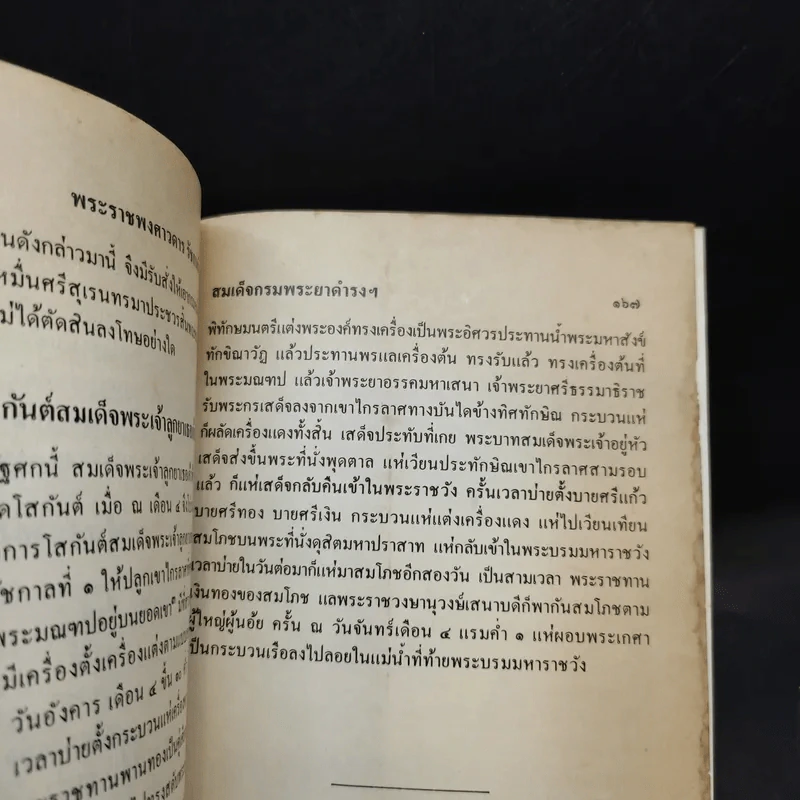 พระราชพงศาวดาร
นดังกล่าวมานี้ จึงมีรับสั่งให้
หมื่นศรีสุเรนทรมาประชาร
ม่ได้ตัดสินลงโทษอย่างใด
กันต์สมเด็จพระเจ้าลูกยาเธอ
ฐศกนี้ สมเด็จพระเจ้าลูกยาเธอ
ดโสกันต์ เมื่อ ณ เดือน ๔
การโสกันต์สมเด็จพระเจ้าลูก
ัชกาลที่ ๑ ให้ปลูกเขาไกรลาศ
พระมณฑปอยู่บนยอดเขา
มีเครื่องตั้งเครื่องแต่งตาม
วันอังคาร เดือน ๔ ขึ้น ๑๐
เวลาบ่ายตั้งกระบวนแห่
ระราชทานพานทองเป็น
สมเด็จกรมพระยาดำรงฯ
๑๖๗
พิทักษมนตรีแต่งพระองค์ทรงเครื่องเป็นพระอิศวรประทานน้ำพระมหาสังข์
ทักขิณาวัฎ แล้วประทานพรแลเครื่องต้น ทรงรับแล้ว ทรงเครื่องต้นที่
ในพระมณฑป แล้วเจ้าพระยาอรรคมหาเสนา เจ้าพระยาศรีธรรมาธิราช
รับพระกรเสด็จลงจากเขาไกรลาศทางบันไดข้างทิศทักษิณ กระบวนแห่
ก็ผลัดเครื่องแดงทั้งสิ้น เสด็จประทับที่เกย พระบาทสมเด็จพระเจ้าอยู่หัว
เสด็จส่งขึ้นพระที่นั่งพุดตาล แห่เวียนประทักษิณเขาไกรลาศสามรอบ
แล้ว ก็แห่เสด็จกลับคืนเข้าในพระราชวัง ครั้นเวลาบ่ายตั้งบายศรีแก้ว
บายศรีทอง บายศรีเงิน กระบวนแห่แต่งเครื่องแดง แห่ไปเวียนเทียน
สมโภชบนพระที่นั่งดุสิตมหาปราสาท แห่กลับเข้าในพระบรมมหาราชวัง
เวลาบ่ายในวันต่อมาก็แห่มาสมโภชอีกสองวัน เป็นสามเวลา พระราชทาน
เงินทองของสมโภช แลพระราชวงษานุวงษ์เสนาบดีก็พากันสมโภชตาม
ผู้ใหญ่ผู้น้อย ครั้น ณ วันจันทร์เดือน ๔ แรมค่ำ ๑ แห่ผอบพระเกศา
เป็นกระบวนเรือลงไปลอยในแม่น้ำที่ท้ายพระบรมมหาราชวัง